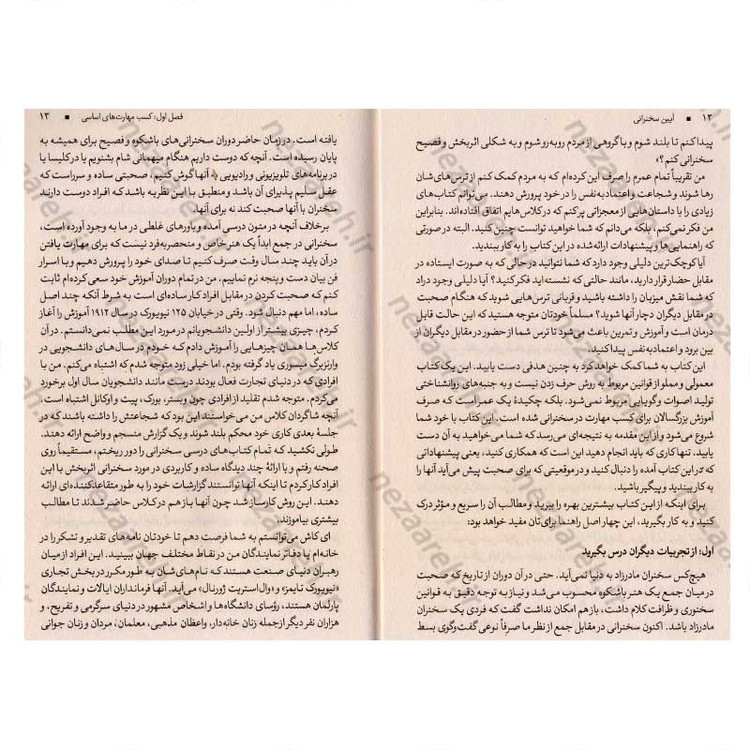 ۱۲ ■ آیین سخنرانی
پیدا کنم تا بلند شوم و با گروهی از مردم روبه‌رو شوم و به شکلی اثربخش و فصیح
سخنرانی کنم؟»
من تقریباً تمام عمرم را صرف این کرده‌ام که به مردم کمک کنم از ترس‌های‌شان
رها شوند و شجاعت و اعتمادبه‌نفس را در خود پرورش دهند. می‌توانم کتاب‌های
زیادی را با داستان‌هایی از معجزاتی پر کنم که در کلاس‌هایم اتفاق افتاده‌اند. بنابراین
من فکر نمی‌کنم، بلکه می‌دانم که شما خواهید توانست چنین کنید. البته در صورتی
که راهنمایی‌ها و پیشنهادات ارائه‌شده در این کتاب را به کار ببندید.
آیا کوچک‌ترین دلیلی وجود دارد که شما نتوانید در حالی که به صورت ایستاده در
مقابل حضار قرار دارید، مانند حالتی که نشسته‌اید فکر کنید؟ آیا دلیلی وجود دارد
که شما نقش میزبان را داشته باشید و قربانی ترس‌هایی شوید که هنگام صحبت
در مقابل دیگران دچار آنها شوید؟ مسلماً خودتان متوجه هستید که این حالت قابل
درمان است و آموزش و تمرین باعث می‌شود تا ترس شما از حضور در مقابل دیگران از
بین برود و اعتمادبه‌نفس پیدا کنید.
این کتاب به شما کمک خواهد کرد به چنین هدفی دست یابید. این یک کتاب
معمولی و مملو از قوانین مربوط به روش حرف زدن نیست و به جنبه‌های روانشناختی
تولید اصوات و گویایی مربوط نمی‌شود. بلکه چکیدهٔ یک عمر است که صرف
آموزش بزرگسالان برای کسب مهارت در سخنرانی شده است. این کتاب با خود شما
شروع می‌شود و از این مقدمه به نتیجه‌ای می‌رسد که شما می‌خواهید به آن دست
یابید. تنها کاری که باید انجام دهید این است که همکاری کنید، یعنی پیشنهاداتی
که در این کتاب آمده را دنبال کنید و در موقعیتی که برای صحبت پیش می‌آید آنها را
به کار ببندید و پیگیر باشید.
برای اینکه از این کتاب بیشترین بهره را ببرید و مطالب آن را سریع و مؤثر درک
کنید و به کار بگیرید، این چهار اصل راهنما برای‌تان مفید خواهد بود:
اول: از تجربیات دیگران درس بگیرید
هیچ‌کس سخنران مادرزاد به دنیا نمی‌آید. حتی در آن دوران از تاریخ که صحبت
در میان جمع یک هنر باشکوه محسوب می‌شد و نیاز به توجه دقیق به قوانین
سخنوری و ظرافت کلام داشت، باز هم امکان نداشت گفت که فردی یک سخنران
مادرزاد باشد. اکنون سخنرانی در مقابل جمع از نظر ما صرفاً نوعی گفت‌وگوی بسط
فصل اول: کسب مهارت‌های اساسی ■ ۱۳
یافته است. در زمان حاضر دوران سخنرانی‌های باشکوه و فصیح برای همیشه به
پایان رسیده است. آنچه که دوست داریم هنگام میهمانی شام بشنویم یا در کلیسا یا
در برنامه‌های تلویزیونی و رادیویی به آنها گوش کنیم، صحبتی ساده و سرراست که
عقل سلیم پذیرای آن باشد و منطبق با این نظریه باشد که افراد دوست دارند
سخنران با آنها صحبت کند نه برای آنها.
برخلاف آنچه در متون درسی آمده و باورهای غلطی در ما به وجود آورده است،
سخنرانی در جمع ابداً یک هنر خاص و منحصربه‌فرد نیست که برای مهارت یافتن
در آن باید چند سال وقت صرف کنیم تا صدای خود را پرورش دهیم و با اسرار
فن بیان دست و پنجه نرم نماییم. من در تمام دوران آموزش خود سعی کرده‌ام ثابت
کنم که صحبت کردن در مقابل افراد کار ساده‌ای است به شرط آنکه چند اصل
ساده، اما مهم دنبال شود. وقتی در خیابان ۱۲۵ نیویورک در سال ۱۹۱۲ آموزش را آغاز
کردم، چیزی بیشتر از اولین دانشجویانم در مورد این مطلب نمی‌دانستم. در آن
کلاس‌ها همان چیزهایی را آموزش دادم که خودم در سال‌های دانشجویی در
وارنزبرگ میسوری یاد گرفته بودم. اما خیلی زود متوجه شدم که اشتباه می‌کنم. من با
افرادی که در دنیای تجارت فعال بودند درست مانند دانشجویان سال اول برخورد
می‌کردم. متوجه شدم تقلید از افرادی چون وبستر، بورک، پیت و اوکانل اشتباه است،
آنچه شاگردان کلاس من می‌خواستند این بود که شجاعتش را داشته باشند که در
جلسهٔ بعدی کاری خود محکم بلند شوند و یک گزارش منسجم و واضح ارائه دهند.
طولی نکشید که تمام کتاب‌های درسی سخنرانی را دور ریختم، مستقیماً روی
صحنه رفتم و با ارائهٔ چند دیدگاه ساده و کاربردی در مورد سخنرانی اثربخش با این
افراد کار کردم تا اینکه آنها توانستند گزارشات خود را به طور متقاعدکننده‌ای ارائه
دهند. این روش کارساز شد چون آنها باز هم در کلاس حاضر شدند تا مطالب
بیشتری بیاموزند.
ای کاش می‌توانستم به شما فرصت دهم تا خودتان نامه‌های تقدیر و تشکر را در
خانه‌ام یا دفاتر نمایندگان من در نقاط مختلف جهان ببینید. این افراد از میان
رهبران دنیای صنعت هستند که نام‌های‌شان به طور مکرر در بخش تجاری
«نیویورک تایمز» و «وال‌استریت ژورنال» می‌آید. آنها فرمانداران ایالات و نمایندگان
پارلمان هستند، رؤسای دانشگاه‌ها و اشخاص مشهور در دنیای سرگرمی و تفریح، و
هزاران نفر دیگر از جمله زنان خانه‌دار، واعظان مذهبی، معلمان، مردان و زنان جوانی
nezaareh.ir